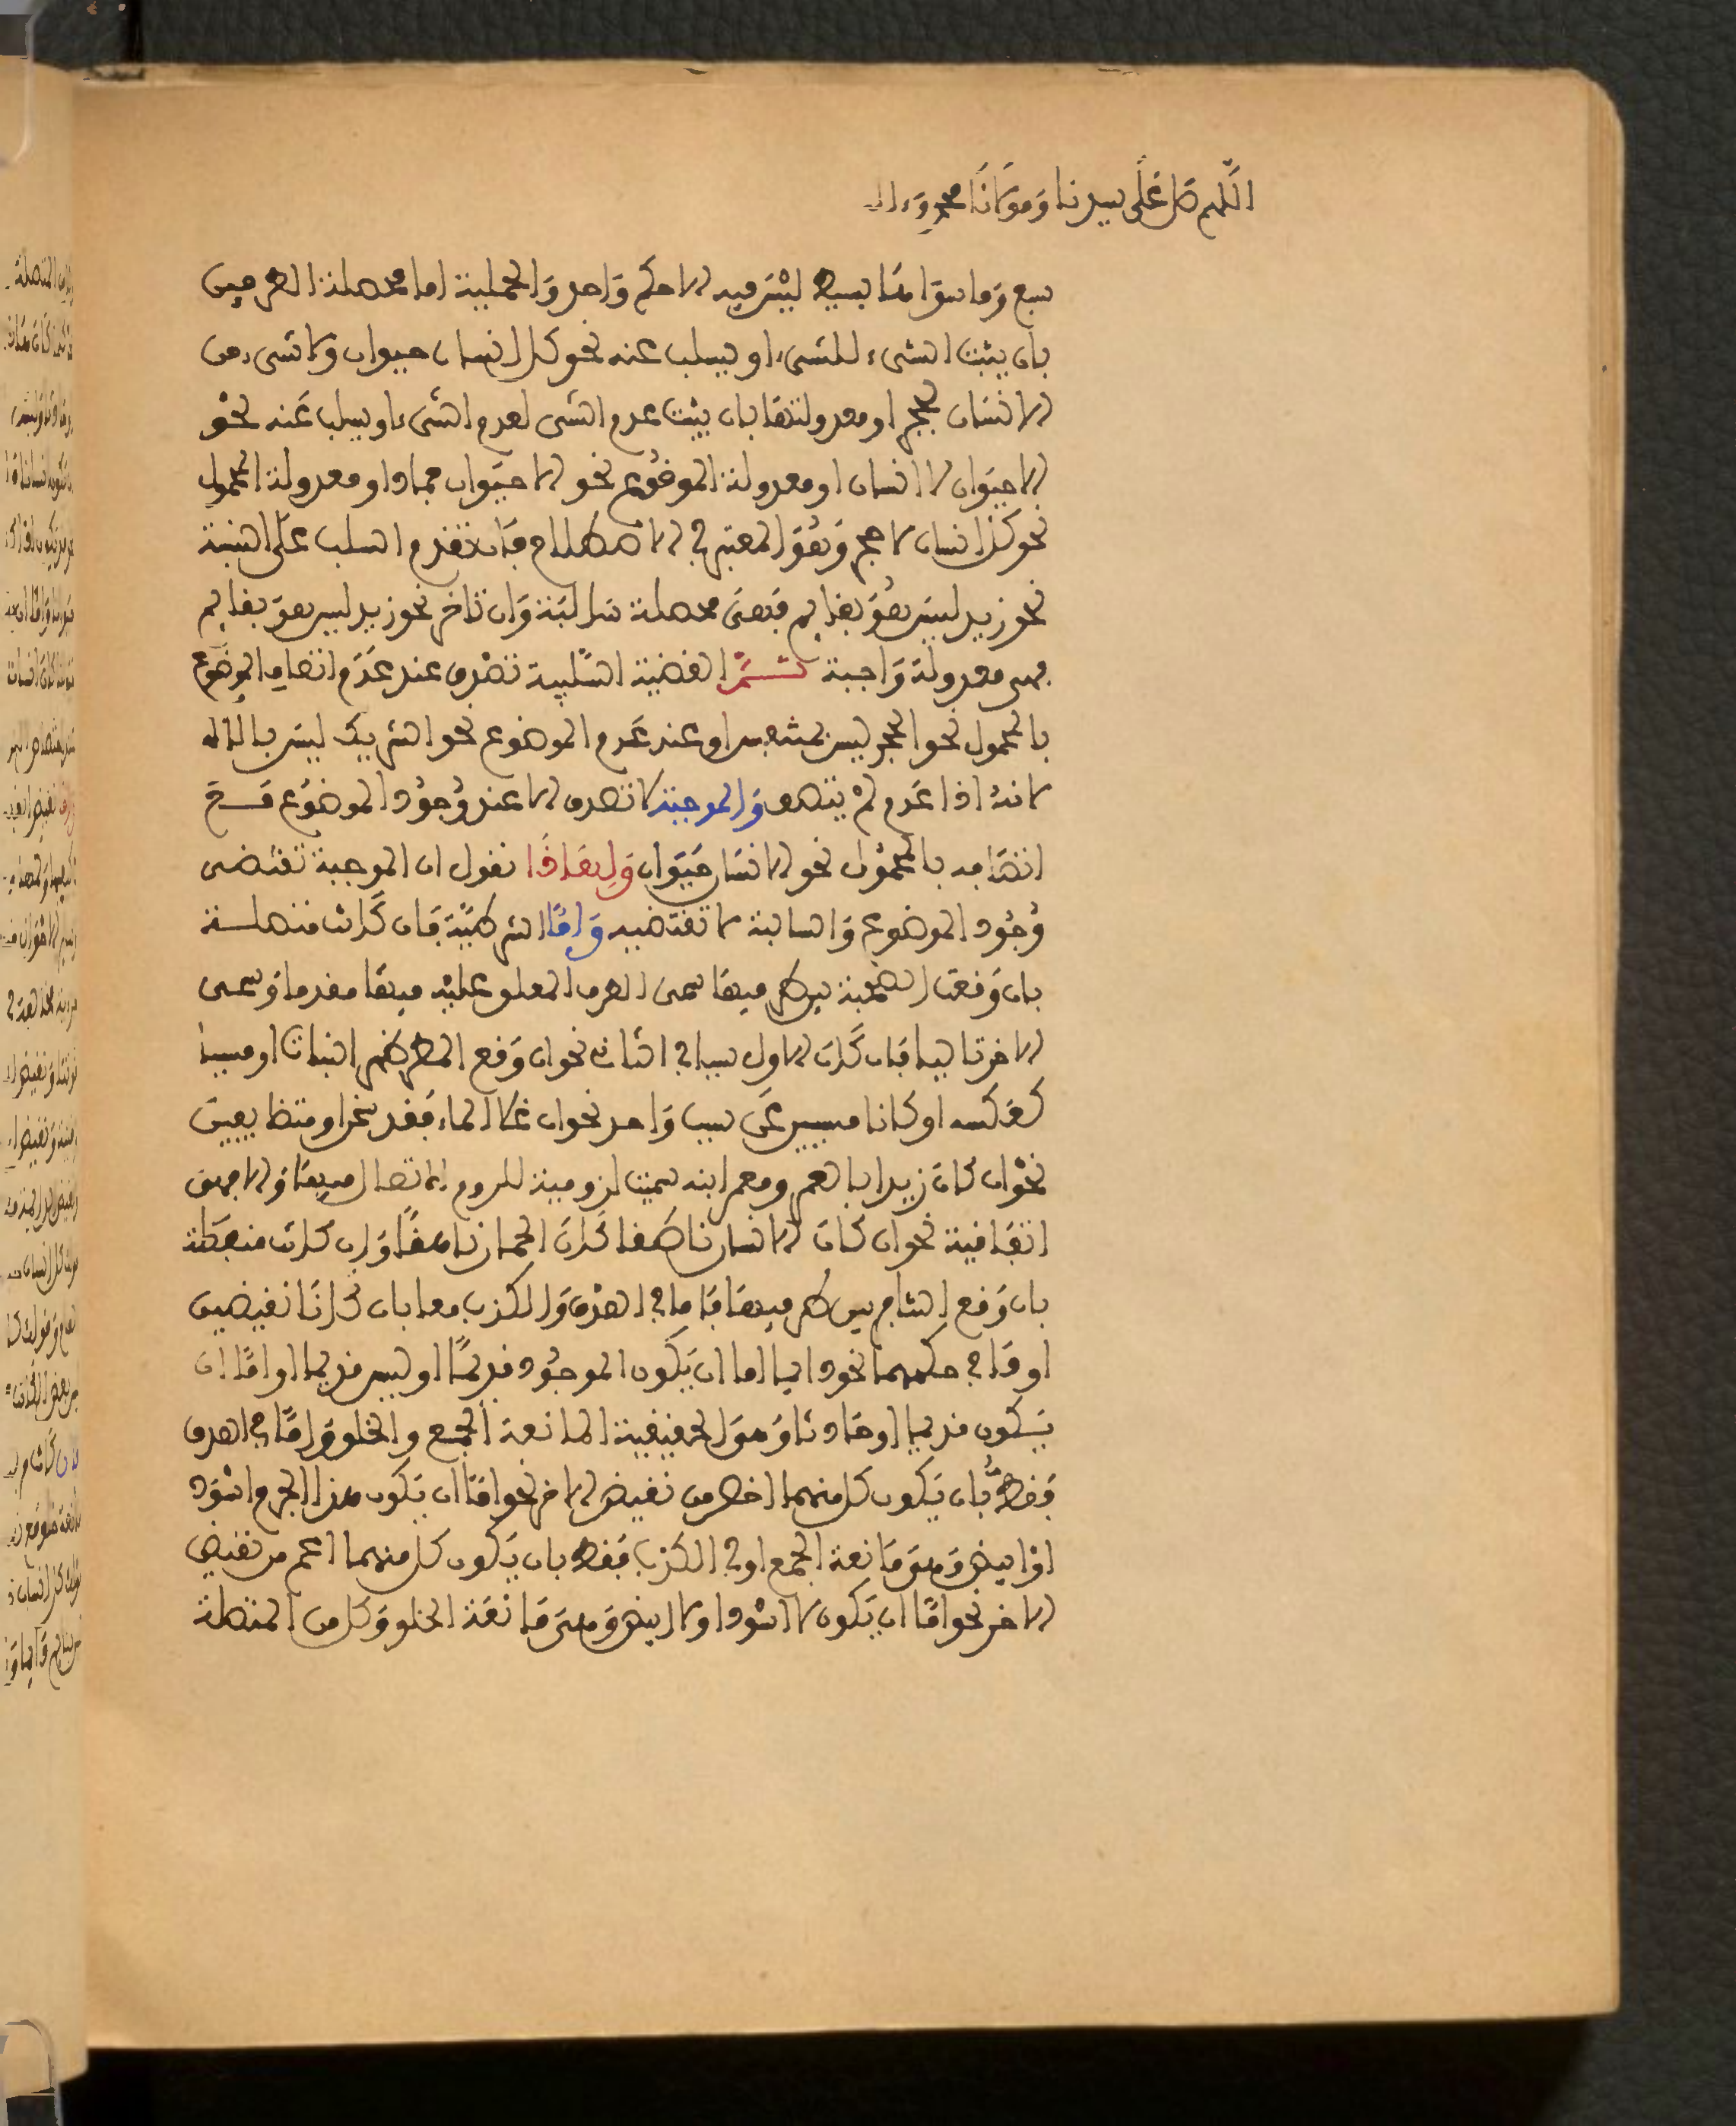 اللهم صل على سيدنا ومولانا محمد وءاله
سبع وما سوا هذا بسيط ليس فيه الا حكم واحد والحملية اما محصلة الطرفين
بان يثبت الشيء للشيء او يسلب عنه نحو كل انسان حيوان ولا شيء من
الانسان بحجر او معدولتهما بان يثبت عدم الشي لعدم الشيء او يسلب عنه نحو
الا حيوان لا انسان او معدولة الموضوع نحو الا حيوان جماد او معدولة المحمول
نحو كل انسان لا حجر وهو المعتبر في الاصطلاح فان تقدم السلب على النسبة
نحو زيد ليس هو بقايم فهي محصلة سالبة وان تاخر نحو زيد ليس هو بقايم
فهي معدولة واجبة ثم القضية السلبية تصدق عند عدم اتصاف الموضوع
بالمحمول نحو الحجر ليس بمثمر او عند عدم الموضوع نحو الشريك ليس بالاله
لانه اذا عدم لم يتصف والموجبة لا تصدق الا عند وجود الموضوع مع
اتصافه بالمحمول نحو الانسان حيوان ولهاذا نقول ان الموجبة تقتضي
وجود الموضوع والسالبة لا تقتضيه واما الشرطية فان كانت متصلة
بان وقعت الصحبة بين طرفيها سمى الطرف المعلو عليه فيها مقدما وسمى
الاخر تاليا فان كان الاول سببا في الثاني نحو ان وقع المطر ظهر النبات او مسببا
كعكسه او كانا مسببين عن سبب واحد نحو ان غلا الماء فقد سخن او متضايفين
نحو ان كان زيد ابا عمرو فعمر ابنه سميت لزومية للزوم الاتصال فيها والا فهي
اتفاقية نحو ان كان الانسان ناطقا كان الحمار ناهقا وان كانت منفصلة
بان وقع التنافر بين طرفيها فاما في الصدق والكذب معا بان كانا نقيضين
او في حكمهما نحو دايما اما ان يكون الموجود قديما او ليس قديما او اما ان
يكون قديما او حادثا وهو الحقيقية المانعة الجمع والخلو واما في الصدق
فقط بان يكون كل منهما اخص من نقيض الاخر نحو اما ان يكون هذا الجرم اسود
او ابيض وهي مانعة الجمع او في الكذب فقط بان يكون كل منهما اعم من نقيض
الاخر نحو اما ان يكون لا اسود او لا ابيض وهي مانعة الخلو وكل من المتصلة